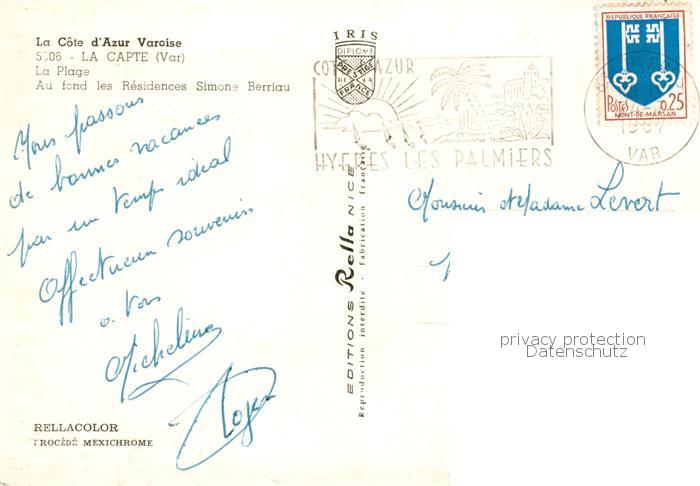 La Côte d'Azur Varoise
5306 - LA CAPTE (Var)
La Plage
Au fond les Résidences Simone Berriau
Nous passons
de bonnes vacances
par un temps idéal
Affectueux souvenirs
a vous
Micheline
Roger
RELLACOLOR
PROCÉDÉ MEXICHROME
IRIS
DIPLOME
PRESTIGE
DE LA
FRANCE
COTE D'AZUR
HYERES LES PALMIERS
EDITIONS Rella NICE
Reproduction interdite - Fabrication Française
REPUBLIQUE FRANÇAISE
POSTES 0,25
MONT-DE-MARSAN
1967
VAR
Monsieur et Madame Levert
privacy protection
Datenschutz